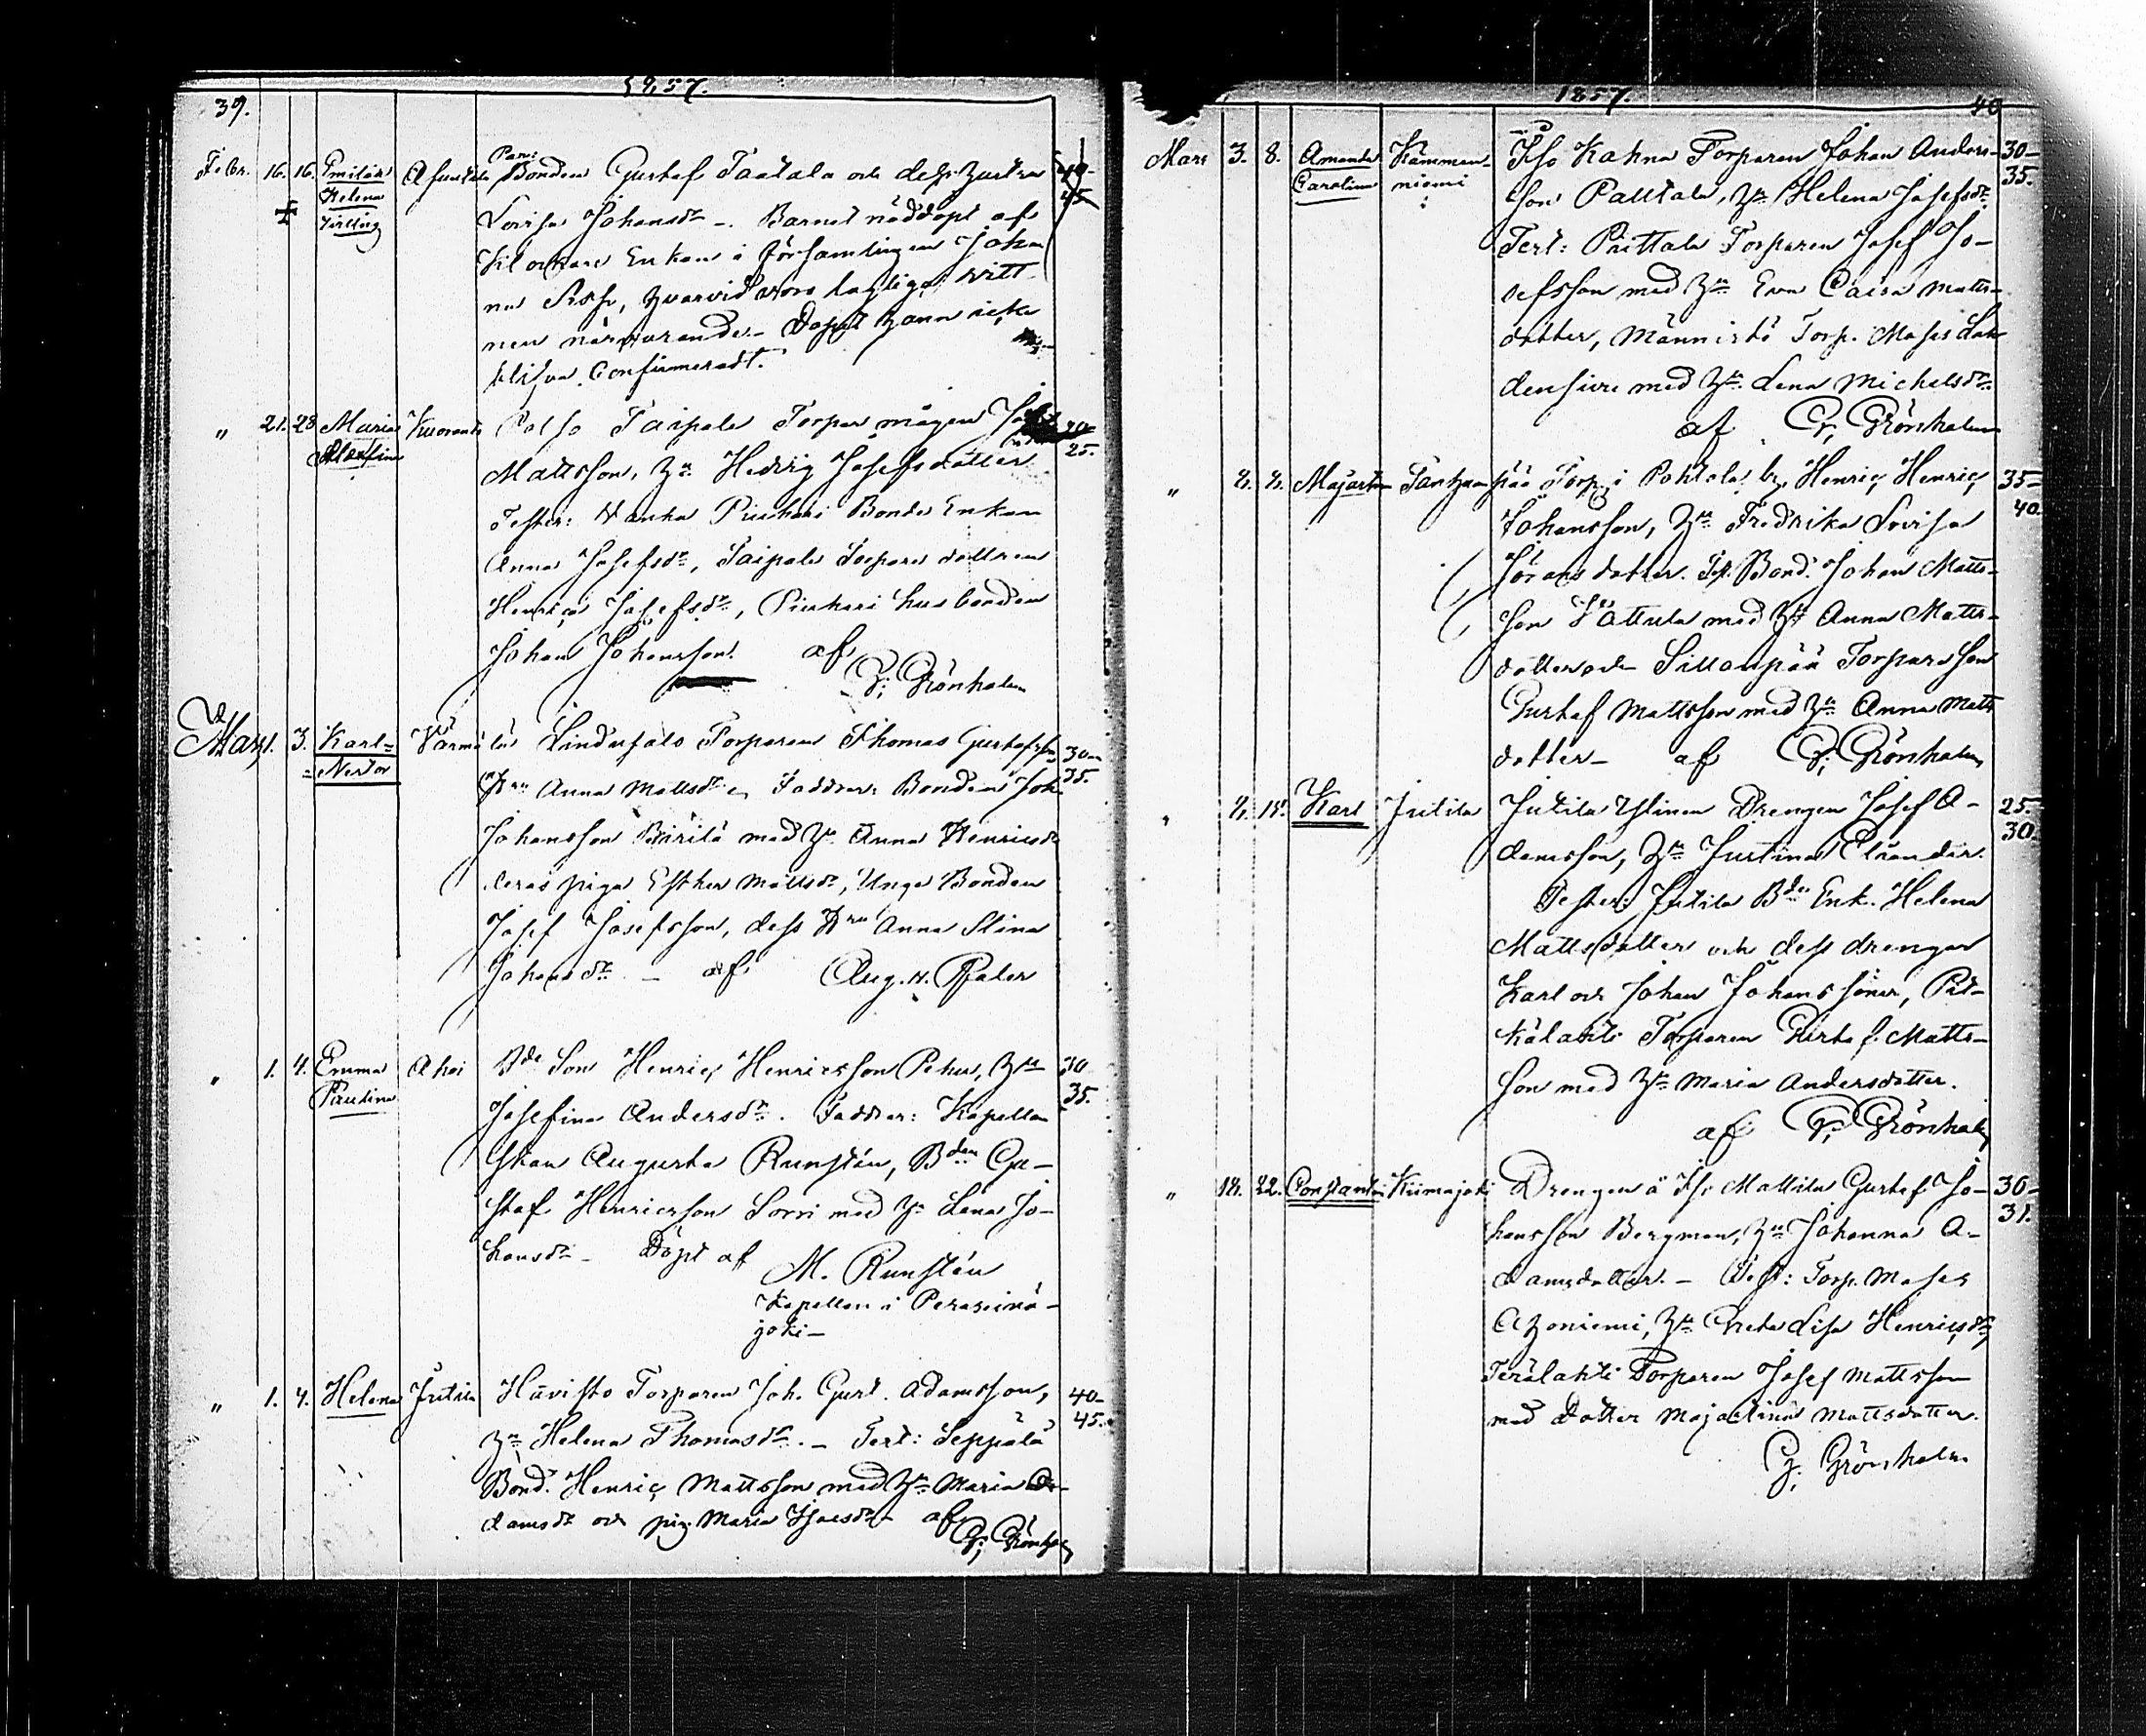 1857.
39.
Febr. 16. 16. Emilia Asuntala Par: Bonden Gustaf Taatala och dess hustru 40-
Helena Lovisa Johansdr. Barnet nöddöpt af 45
Tvilling Klockare Enkan i församlingen Johan
na, hvarvid voro lagliga vitt
nen närvarande. Dopet hann icke
blifva Confirmeradt.
" 21. 28 Maria Kuoranta Taipale Torpare mågen
Mattsson, hu Hedvig Josefsdotter 25.
Tester: Piuhari Bonde Enkan
Anna Josefsdr, Taipale Torpare dottren
Henrica Josefsdr, Piuhari husbonden
Johan Johansson. af
G. Grönholm
Mars 1. 3. Karl= Värmälä Torparen Thomas Gustafsson 30-
=Nestor Hru Anna Mattsdr, Faddrar: Bonden Joh. 35.
Johansson med hu Anna Henricsdr
deras piga Esther Mattsdr, Unge Bonden
Josef Josefsson, dess Hru Anna Stina
Johansdr - af Aug. W. Pfaler
" 1. 4. Emma Ahoi Bde Son Henric Henricsson Pehu, hu 30
Paulina Josefina Andersdr. Faddrar: Kapellan 35.
skan Augusta Runstén, Bden Gu-
staf Henricsson Sorri med hu Lena Jo-
hansdr - Döpt af
M. Runstén
Kapellan i Peräseinä-
joki-
" 1. 4. Helena Jutila Havisto Torparen Joh. Gust. Adamsson, 40-
hu Helena Thomasdr. - Test: Seppälä 45.
Bond. Henric Mattsson med hu Maria A-
damsdr och pig. Maria Isacsdr af
G. Grönholm
1857. 40
Mars 3. 8. Amanda Kämmen- Iso Kahna Torparen Johan Anders- 30-
Carolina niemi son Palttala, hu Helena Josefsdr. 35.
Test: Palttala Torparen Josef Jo-
sefsson med hu Eva Caisa Matts-
dotter, Männistö Torp. Moses Lak
densivu med hu Lena Michelsdr.
af G. Grönholm
" 8. 8. Majastina Tanhuanpää Torp. i Pohtola by, Henric Henric 35-
Johansson, hu Fredrika Lovisa 40.
Jöransdotter. Test. Bond. Johan Matts-
son Vattula med hu Anna Matts-
dotter och Sillanpää Torpareson
Gustaf Mattsson med hu Anna Matts
dotter- af G. Grönholm
" 8. 15. Karl Jutila Jutila Ylinen Drengen Josef A- 25.
damsson, hu Justina Elsandr. 30.
Tester: Jutila Bde Enk. Helena
Mattsdotter och dess drengar
Karl och Johan Johanssöner, Pit-
kälahti Torparen Gustaf Matts-
son med hu Maria Andersdotter.
af G. Grönholm
" 18. 22. Constantin Kiimajoki Drengen å Iso Mattila Gustaf Jo- 30-
hansson Bergman, hu Johanna A- 31.
damsdotter. - Test: Torp. Moses
Ahoniemi, hu Greta Lisa Henricsdr,
Perälahti Torparen Josef Mattsson
med dotter Majastina Mattsdotter.
G. Grönholm